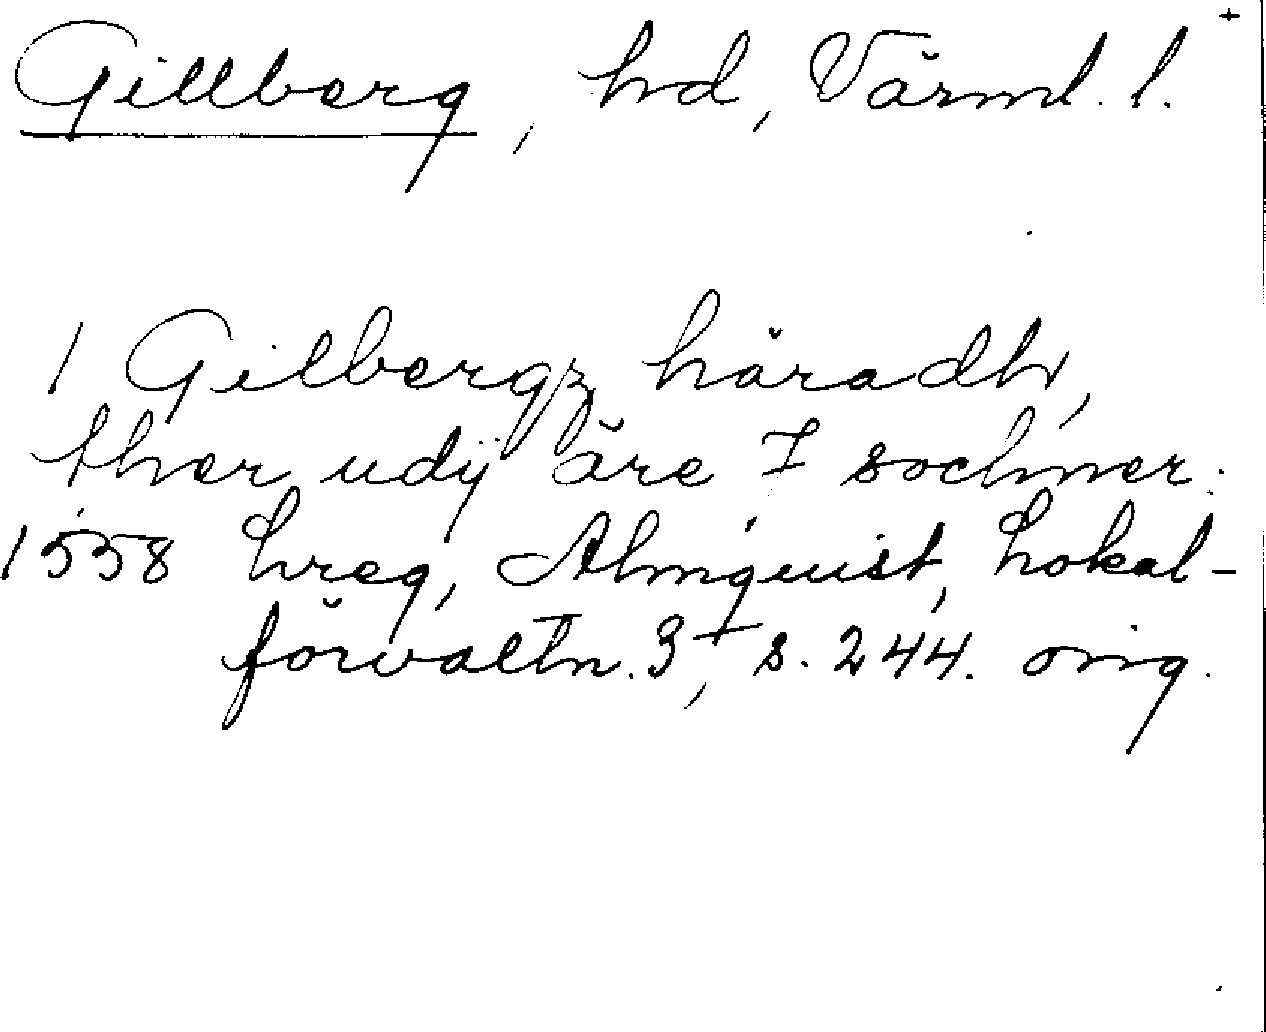 +
Gillberg, hd, Värml. l.
1 Gilbergz häradh,
ther udÿ äre 7 sochner.
1558 hreg, Almquist, Lokal-
förvaltn. 3, s. 244. orig.